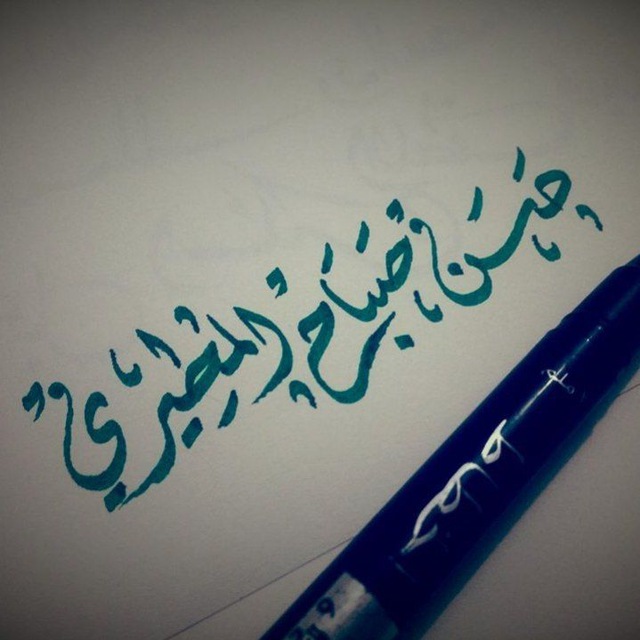 حسن صباح المطيري